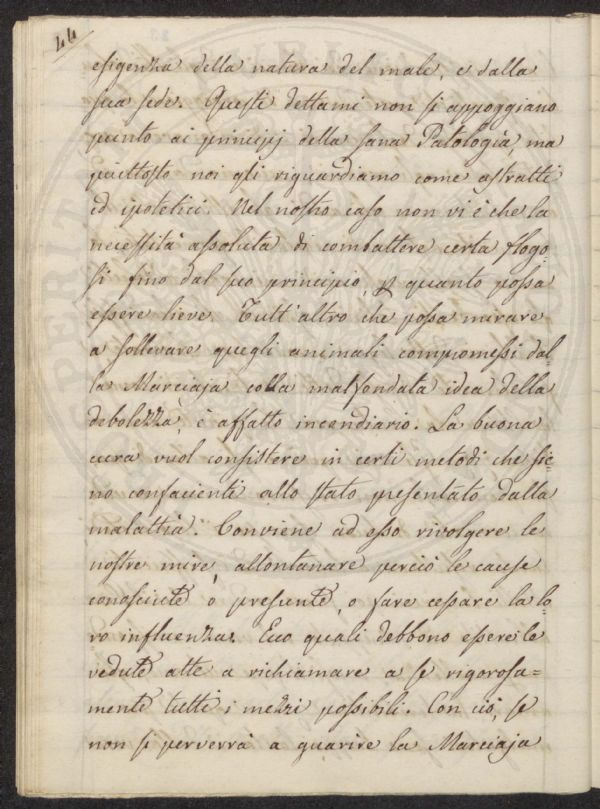 44
esigenza della natura del male, e dalla
sua sede. Questi dettami non si appoggiano
punto ai principj della sana Patologia, ma
piuttosto noi gli riguardiamo come astratti
ed ipotetici. Nel nostro caso non vi è che la
necessità assoluta di combattere certa flogo=
si fino dal suo principio, p quanto possa
essere lieve. Tutt'altro che possa mirare
a sollevare quegli animali compromessi dal
la Marciaja colla malfondata idea della
debolezza, è affatto incendiario. La buona
cura vuol consistere in certi metodi che sie=
no confacienti allo stato presentato dalla
malattia. Conviene ad esso rivolgere le
nostre mire, allontanare perciò le cause
conosciute o presunte, o fare cessare la lo
ro influenza. Ecco quali debbono essere le
vedute atte a richiamare a se rigorosa=
mente tutti i mezzi possibili. Con ciò, se
non si perverrà a guarire la Marciaja